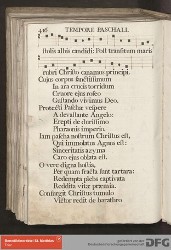 416 TEMPORE PASCHALI.
stolis albis candidi: Post transitum maris
rubri Christo canamus principi.
Cujus corpus sanctissimum
In ara crucis torridum
Cruore ejus roseo
Gustando vivimus Deo.
Protecti Paschæ vespere
A devastante Angelo:
Erepti de durissimo
Pharaonis imperio.
Iam pascha nostrum Christus est,
Qui immolatus Agnus est:
Sinceritatis azyma
Caro ejus oblata est.
O vere digna hostia,
Per quam fracta sunt tartara:
Redempta plebs captivata
Reddita vitæ præmia.
Consurgit Christus tumulo
Victor redit de barathro
DFG